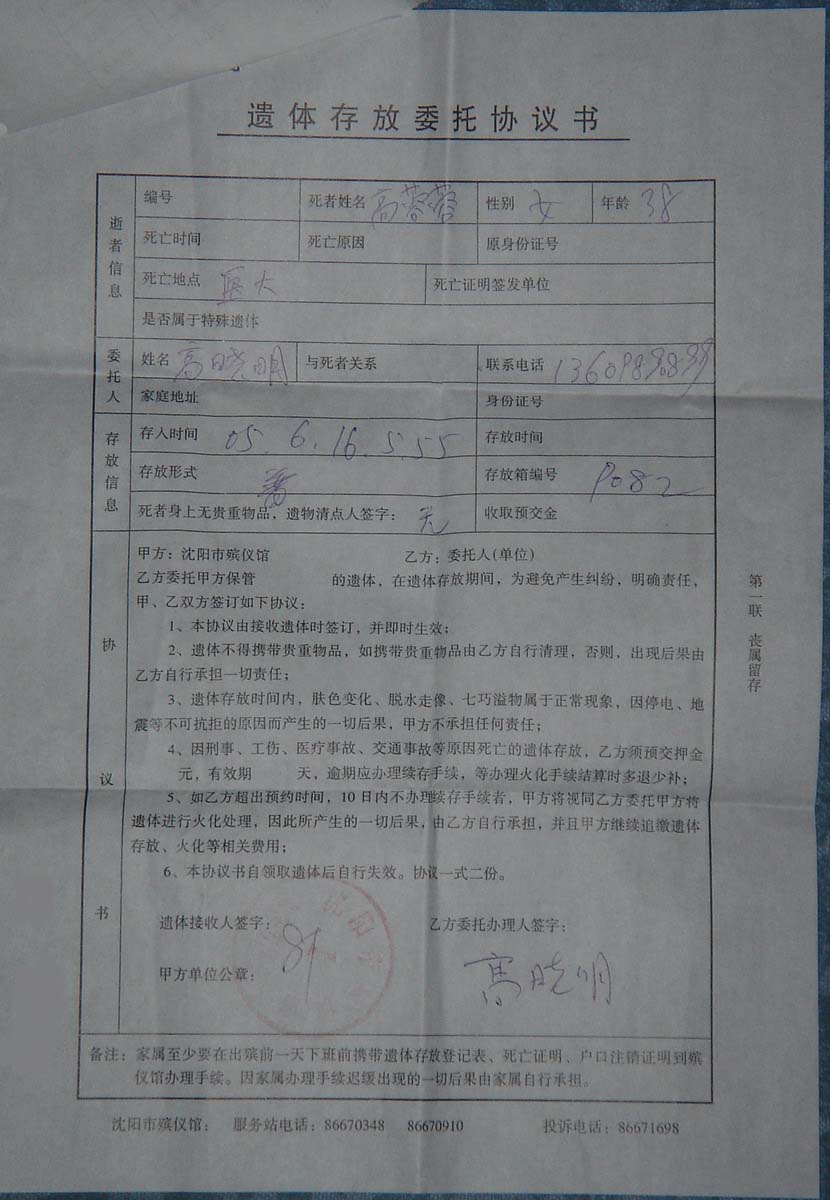 遗体存放委托协议书
逝者信息
编号 死者姓名 高蓉蓉 性别 女 年龄 38
死亡时间 死亡原因 原身份证号
死亡地点 医大 死亡证明签发单位
是否属于特殊遗体
委托人
姓名 高晓明 与死者关系 联系电话
家庭地址 身份证号
存放信息
存入时间 05.6.16.5.55 存放时间
存放形式 存放箱编号 P082
死者身上无贵重物品，遗物清点人签字： 无 收取预交金
协议书
甲方：沈阳市殡仪馆 乙方：委托人(单位)
乙方委托甲方保管 的遗体，在遗体存放期间，为避免产生纠纷，明确责任，
甲、乙双方签订如下协议：
1、本协议由接收遗体时签订，并即时生效；
2、遗体不得携带贵重物品，如携带贵重物品由乙方自行清理，否则，出现后果由
乙方自行承担一切责任；
3、遗体存放时间内，肤色变化、脱水走像、七巧溢物属于正常现象，因停电、地
震等不可抗拒的原因而产生的一切后果，甲方不承担任何责任；
4、因刑事、工伤、医疗事故、交通事故等原因死亡的遗体存放，乙方须预交押金
元，有效期 天，逾期应办理续存手续，等办理火化手续结算时多退少补；
5、如乙方超出预约时间，10日内不办理续存手续者，甲方将视同乙方委托甲方将
遗体进行火化处理，因此所产生的一切后果，由乙方自行承担，并且甲方继续追缴遗体
存放、火化等相关费用；
6、本协议书自领取遗体后自行失效。协议一式二份。
遗体接收人签字： 乙方委托办理人签字：
甲方单位公章： 高晓明
备注：家属至少要在出殡前一天下班前携带遗体存放登记表、死亡证明、户口注销证明到殡
仪馆办理手续。因家属办理手续迟缓出现的一切后果由家属自行承担。
沈阳市殡仪馆： 服务站电话：86670348 86670910 投诉电话：86671698
第一联 丧属留存